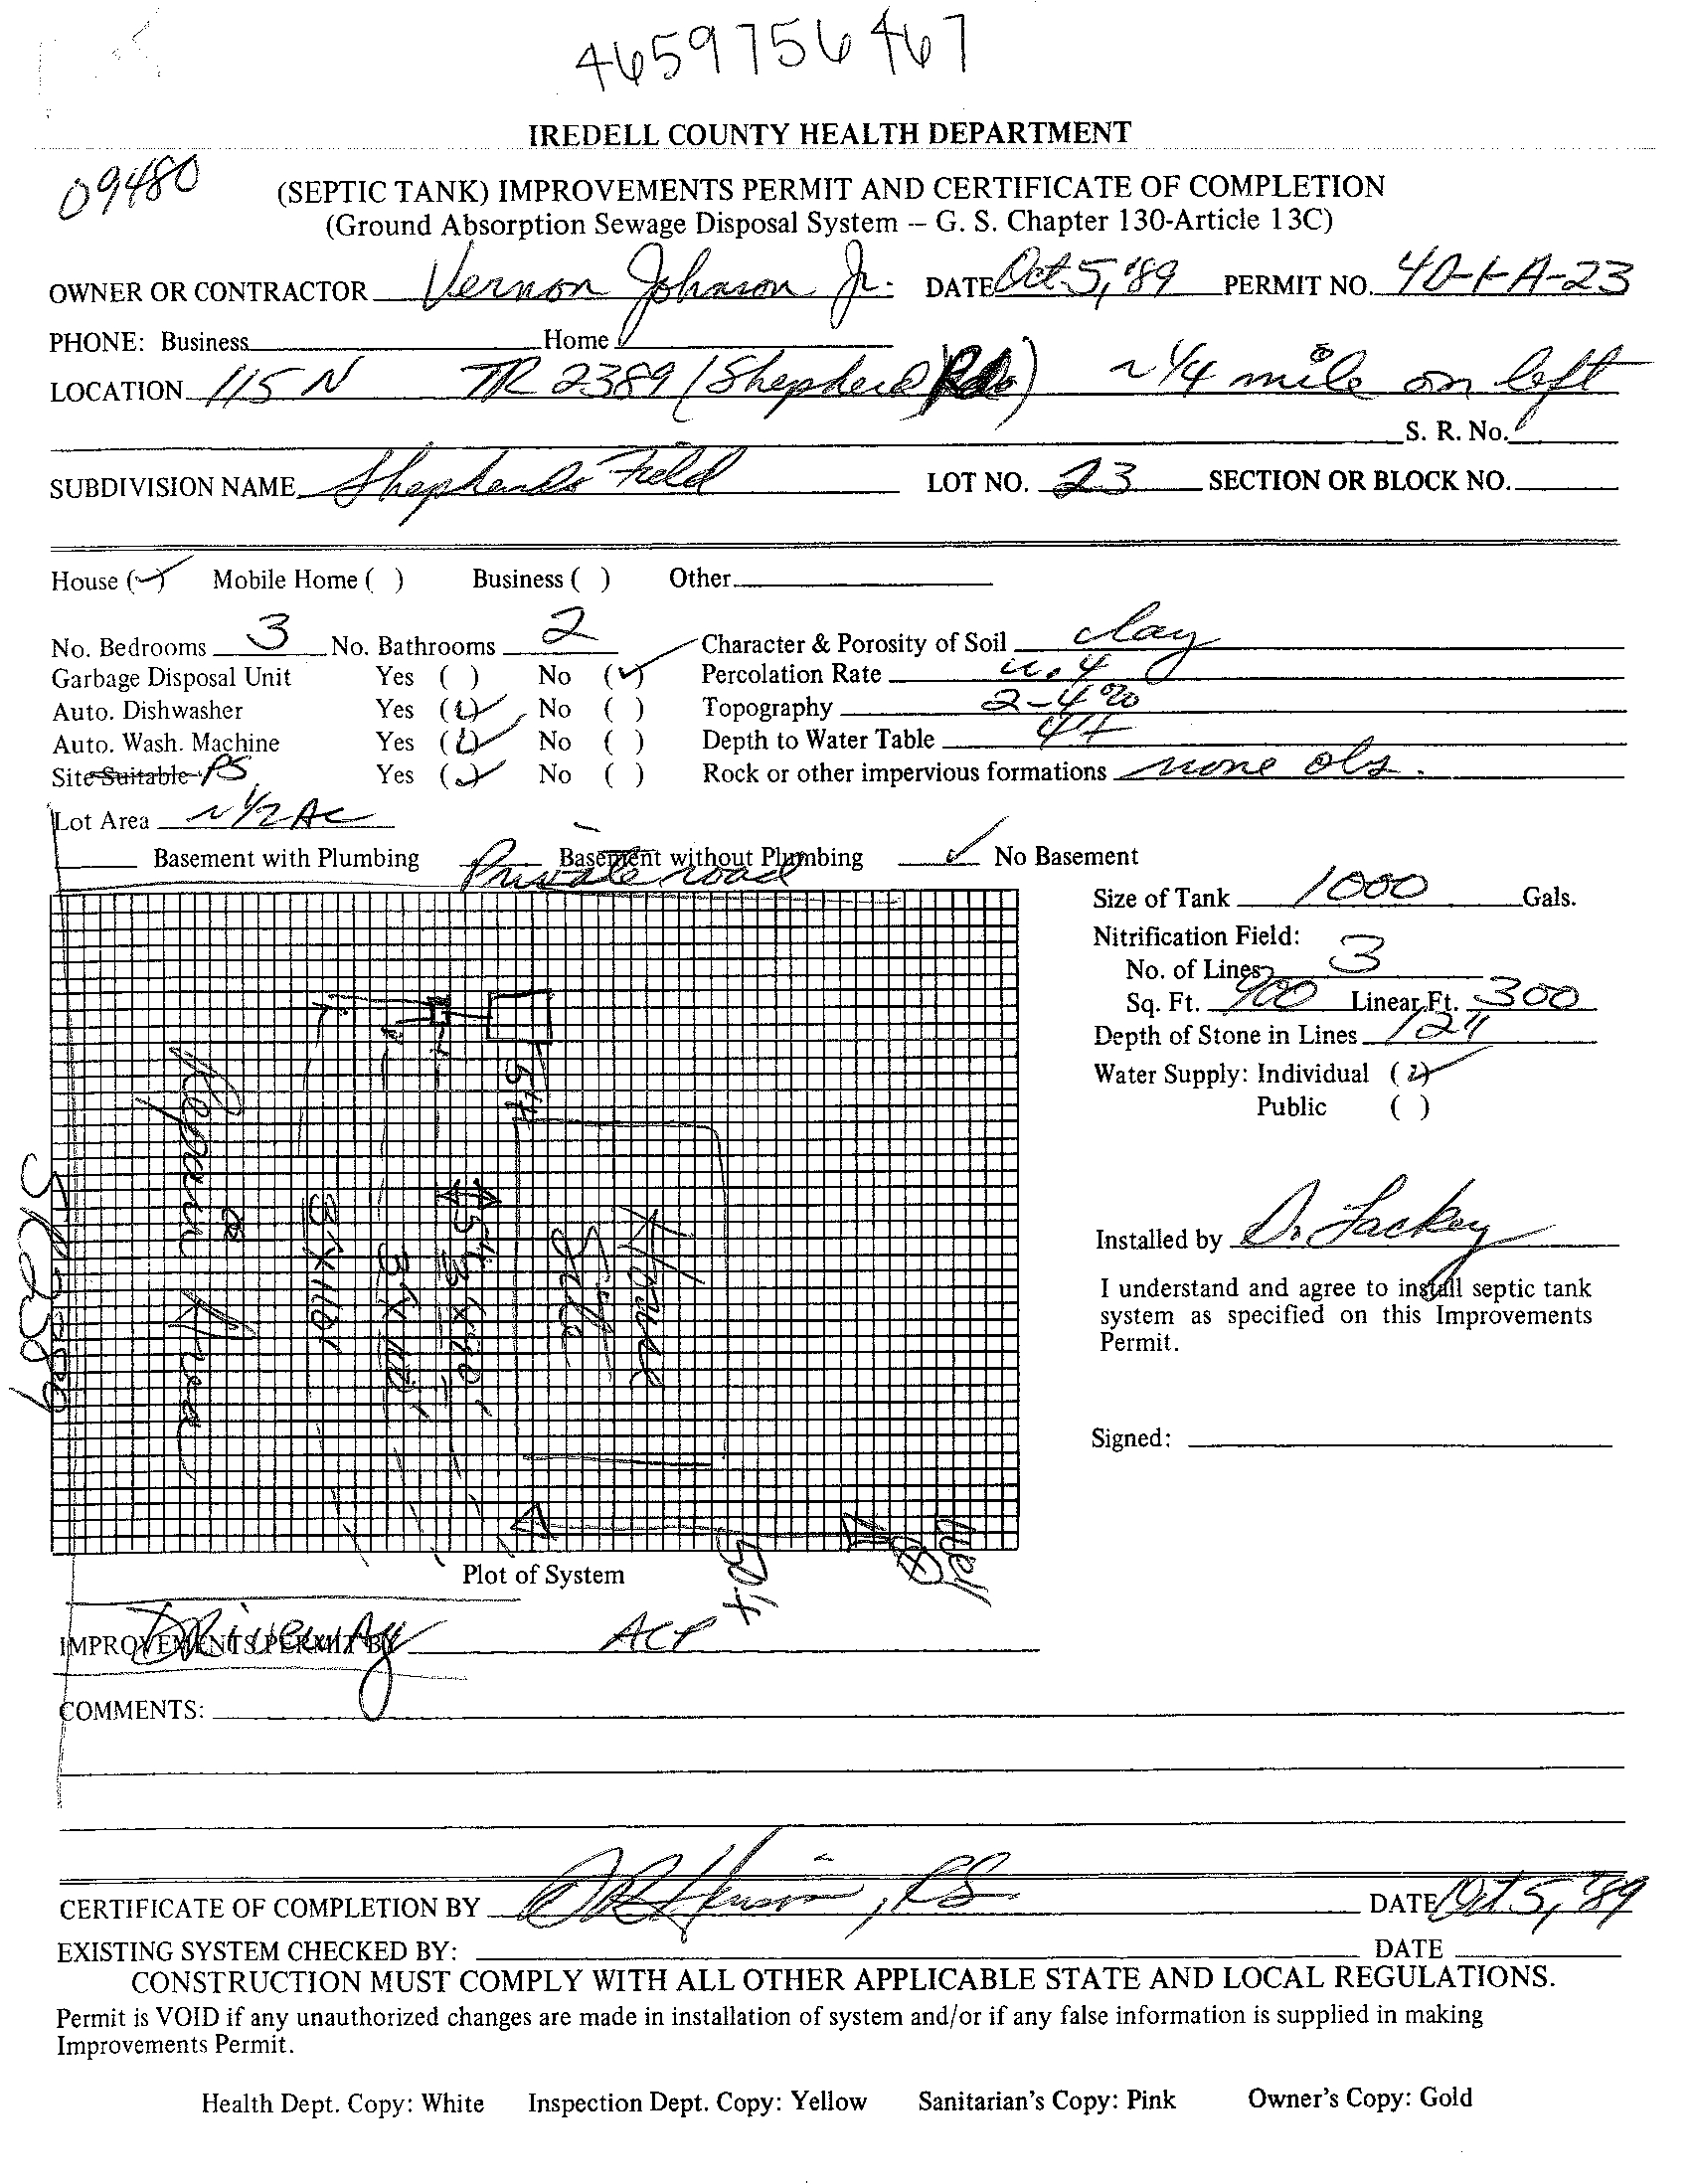 4659756467
IREDELL COUNTY HEALTH DEPARTMENT
09480
(SEPTIC TANK) IMPROVEMENTS PERMIT AND CERTIFICATE OF COMPLETION
(Ground Absorption Sewage Disposal System -- G. S. Chapter 130-Article 13C)
OWNER OR CONTRACTOR Vernon Johnson Jr. DATE Oct 5, '89 PERMIT NO. 40-1-A-23
PHONE: Business Home
LOCATION 115 N TR 2389 (Shepherd Rd) ~ 1/4 mile on left
S. R. No.
SUBDIVISION NAME Shepherds Field LOT NO. 23 SECTION OR BLOCK NO.
House (✓) Mobile Home ( ) Business ( ) Other
No. Bedrooms 3 No. Bathrooms 2 Character & Porosity of Soil clay
Garbage Disposal Unit Yes ( ) No (✓) Percolation Rate u.4
Auto. Dishwasher Yes (✓) No ( ) Topography 2-4%
Auto. Wash. Machine Yes (✓) No ( ) Depth to Water Table 4'+
Site Suitable PS Yes (✓) No ( ) Rock or other impervious formations none obs.
Lot Area ~ 1/2 AC
Basement with Plumbing Basement without Plumbing ✓ No Basement
Private road
Size of Tank 1000 Gals.
Nitrification Field:
No. of Lines 3
Sq. Ft. 900 Linear Ft. 300
Depth of Stone in Lines 12"
Water Supply: Individual (✓)
Public ( )
SR 2389
Repair Area
5'+
3'x110'
3'x100'
3'x90'
House
50'+
Well
Installed by D. Lackey
I understand and agree to install septic tank
system as specified on this Improvements
Permit.
Signed:
Plot of System
Driveway
IMPROVEMENTS PERMIT BY ACP
COMMENTS:
CERTIFICATE OF COMPLETION BY , RS DATE Oct 5, '89
EXISTING SYSTEM CHECKED BY: DATE
CONSTRUCTION MUST COMPLY WITH ALL OTHER APPLICABLE STATE AND LOCAL REGULATIONS.
Permit is VOID if any unauthorized changes are made in installation of system and/or if any false information is supplied in making
Improvements Permit.
Health Dept. Copy: White Inspection Dept. Copy: Yellow Sanitarian's Copy: Pink Owner's Copy: Gold